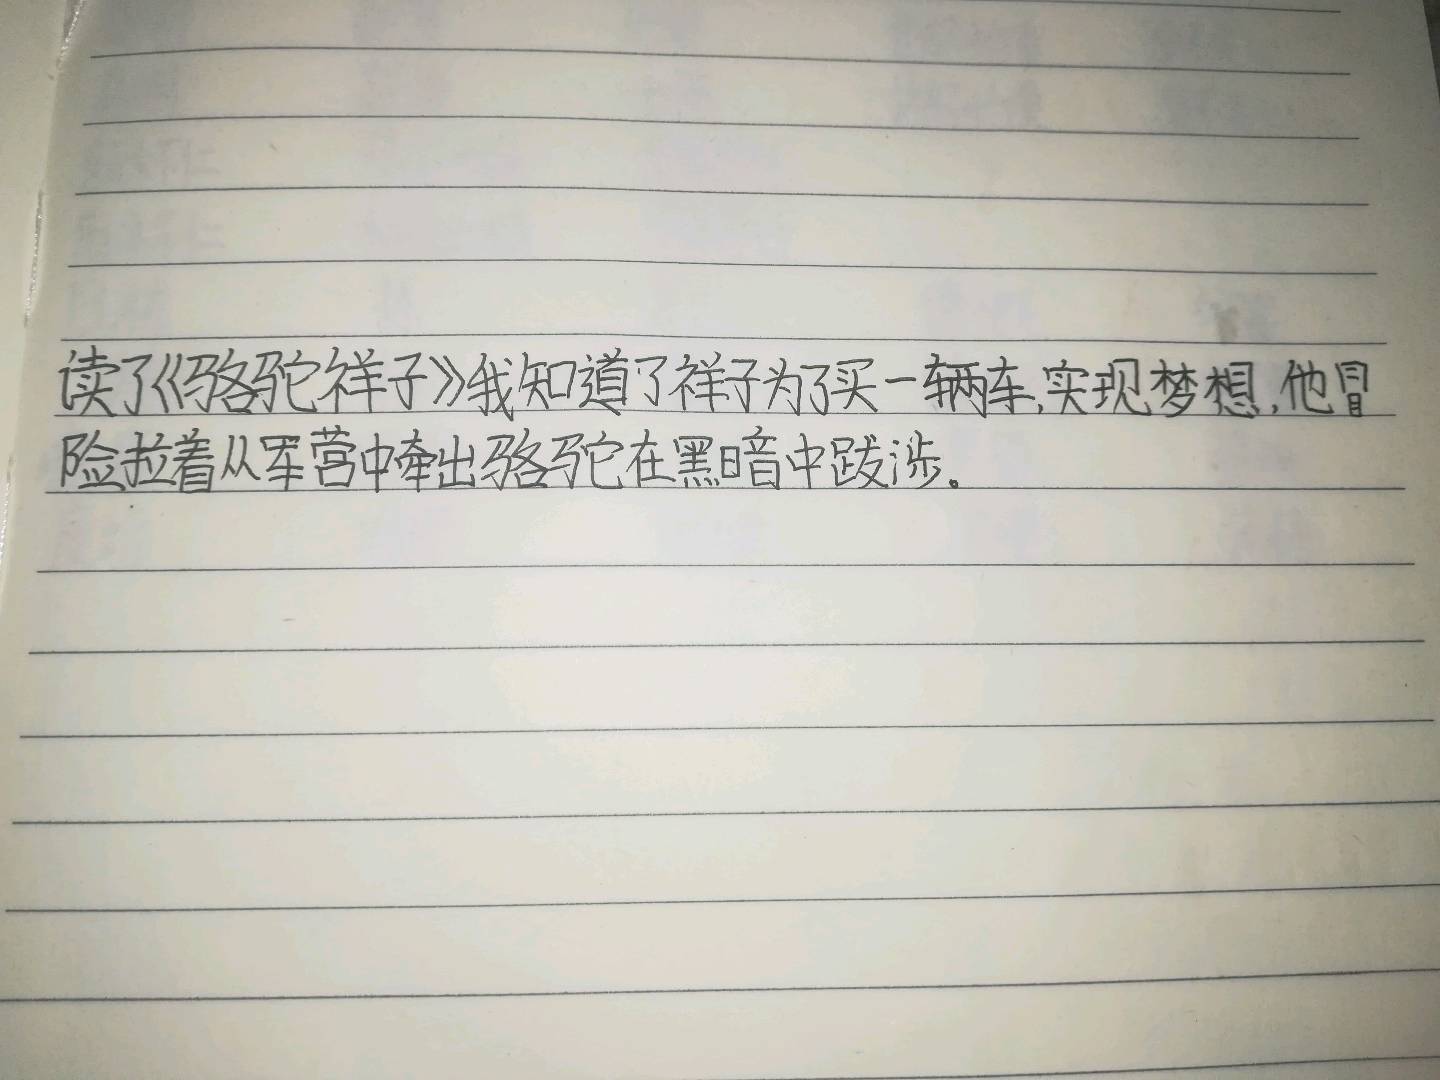 读了《骆驼祥子》我知道了祥子为了买一辆车,实现梦想,他冒
险拉着从军营中牵出骆驼在黑暗中跋涉。